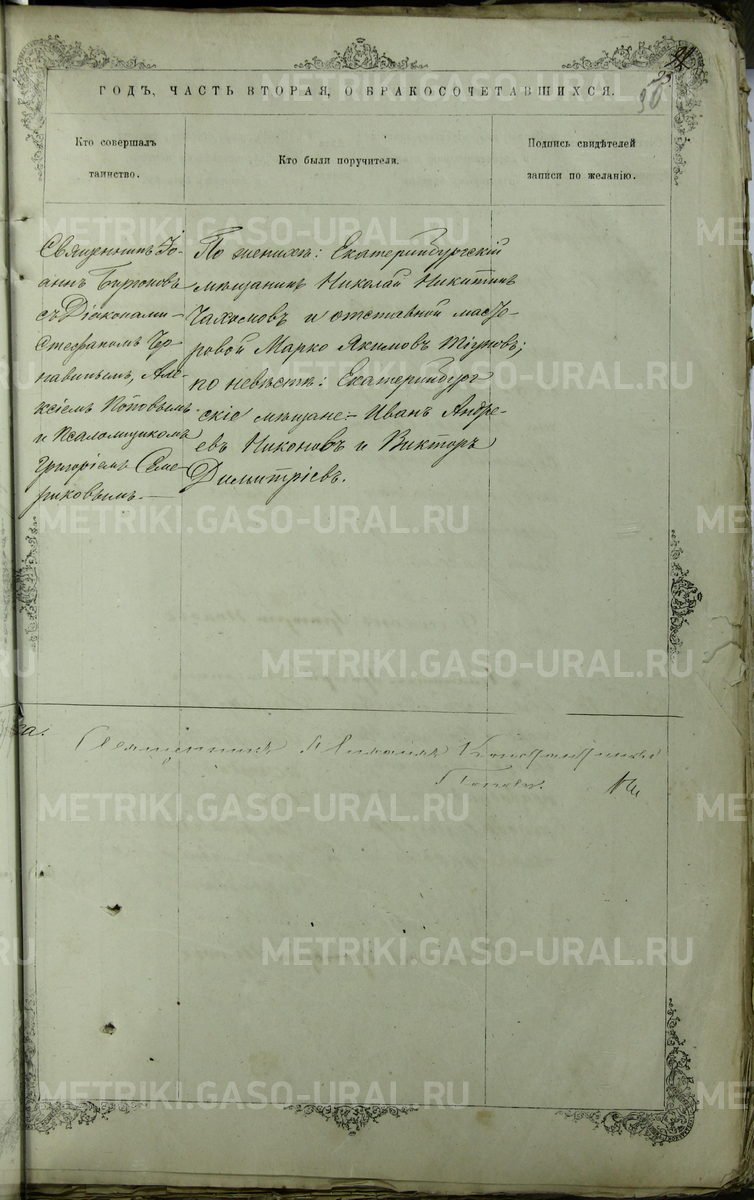 ГОДЪ, ЧАСТЬ ВТОРАЯ, О БРАКОСОЧЕТАВШИХСЯ.
90
Кто совершалъ
таинство.
Кто были поручители.
Подпись свидѣтелей
записи по желанію.
Священникъ Іо-
аннъ
съ Діаконами
Стефаномъ
Але-
ксіемъ Поповымъ
и Псаломщикомъ
Григоріемъ Семе-
риковымъ.
По женихѣ: Екатеринбургскій
мѣщанинъ Николай Никитинъ
и отставной масте-
ровой Марко Якимовъ
по невѣстѣ: Екатеринбург
скіе мѣщане: Иванъ Андре-
евъ Никоновъ и Викторъ
Димитріевъ.
Священникъ
Поповъ.
METRIKI.GASO-URAL.RU